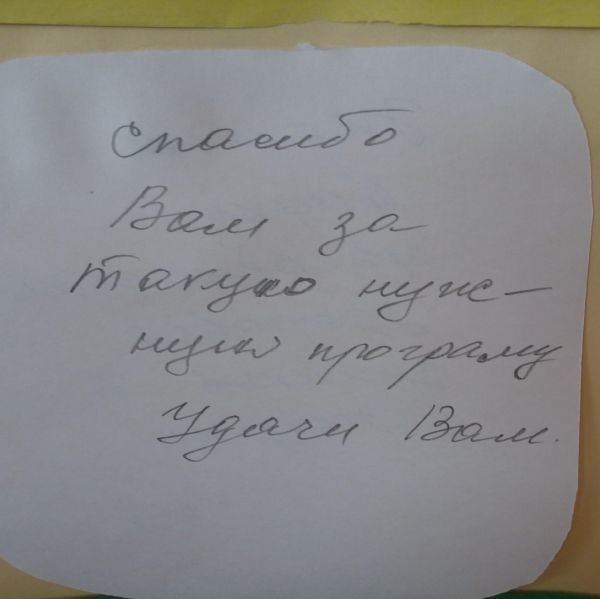 спасибо
Вам за
такую нуж-
ную програму
Удачи Вам.